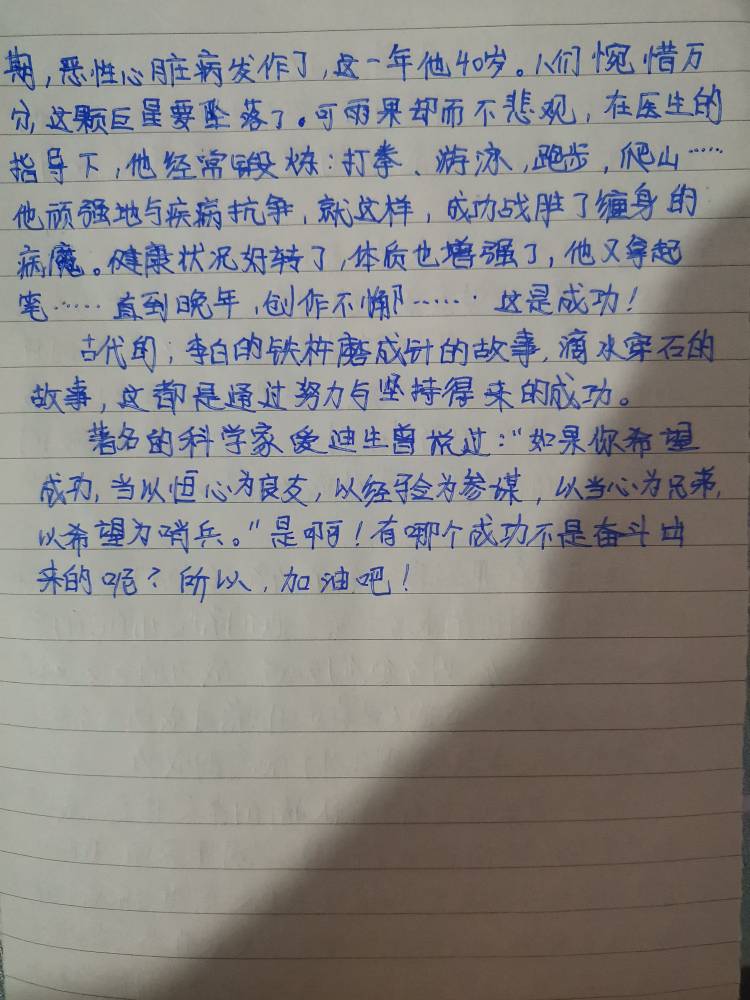 期，恶性心脏病发作了，这一年他40岁。人们惋惜万
分，这颗巨星要坠落了。可雨果却而不悲观，在医生的
指导下，他经常锻炼：打拳、游泳，跑步，爬山……
他顽强地与疾病抗争，就这样，成功战胜了缠身的
病魔。健康状况好转了，体质也增强了，他又拿起
笔……直到晚年，创作不懈……这是成功！
古代的，李白的铁杵磨成针的故事，滴水穿石的
故事，这都是通过努力与坚持得来的成功。
著名的科学家爱迪生曾说过：“如果你希望
成功，当以恒心为良友，以经验为参谋，以当心为兄弟，
以希望为哨兵。”是啊！有哪个成功不是奋斗出
来的呢？所以，加油吧！